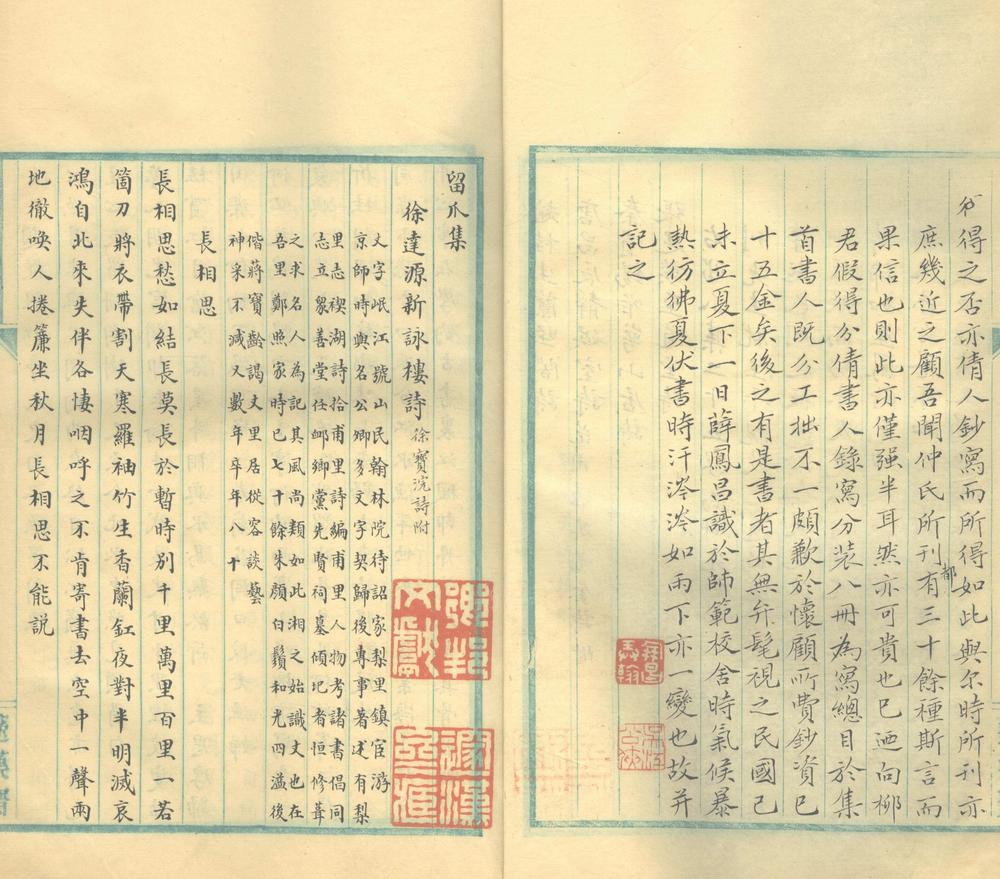 得之否亦倩人鈔寫而所得如此與尔時所刊亦
庶幾近之顧吾聞仲氏所刊都有三十餘種斯言而
果信也則此亦僅强半耳然亦可貴也巳迺向柳
君假得分倩書人錄寫分装八冊為寫總目於集
首書人既分工拙不一頗歉於懷顧所費鈔資巳
十五金矣後之有是書者其無弁髦視之民國己
未立夏下一日薛鳳昌識於師範校舍時氣候暴
熱彷彿夏伏書時汗涔涔如雨下亦一變也故并
記之
留爪集
徐達源新詠樓詩 徐寶浣詩附
丈字岷江號山民翰林院待詔家梨里鎮宦游
京師時與名公卿多文字契歸後專事著述有梨
里志禊湖詩拾甫里詩編甫里人物考諸書倡同
志立衆善堂任卹鄉黨先賢祠墓傾圯者恒修葺
之求名人為記其風尚類如此湘之始識丈也在
吾里鄭照家時已七十餘朱顏白鬚和光四溢後
偕蔣寶齡謁丈里居從容談藝
神采不減又數年卒年八十
長相思
長相思愁如結長莫長於暫時別千里萬里百里一若
箇刀將衣帶割天寒羅袖竹生香蘭釭夜對半明滅哀
鴻自北來失伴各悽咽呼之不肯寄書去空中一聲兩
地徹喚人捲簾坐秋月長相思不能說
鄉邦文獻